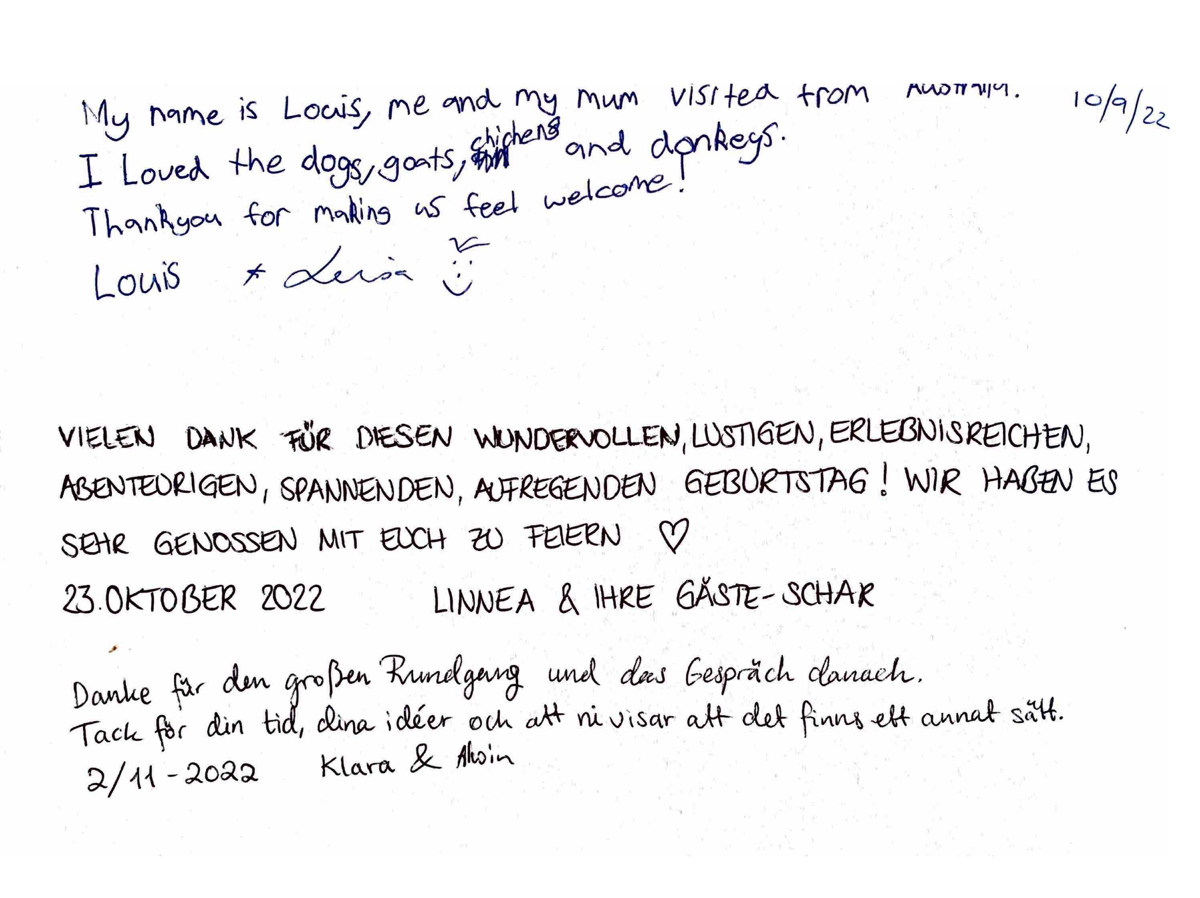 My name is Louis, me and my mum visited from Australia. 10/9/22
I Loved the dogs, goats, chickens and donkeys.
Thankyou for making us feel welcome!
Louis * Leisa
VIELEN DANK FÜR DIESEN WUNDERVOLLEN, LUSTIGEN, ERLEBNISREICHEN,
ABENTEURIGEN, SPANNENDEN, AUFREGENDEN GEBURTSTAG! WIR HABEN ES
SEHR GENOSSEN MIT EUCH ZU FEIERN ♡
23. OKTOBER 2022 LINNEA & IHRE GÄSTE-SCHAR
Danke für den großen Rundgang und das Gespräch danach.
Tack för din tid, dina idéer och att ni visar att det finns ett annat sätt.
2/11-2022 Klara &